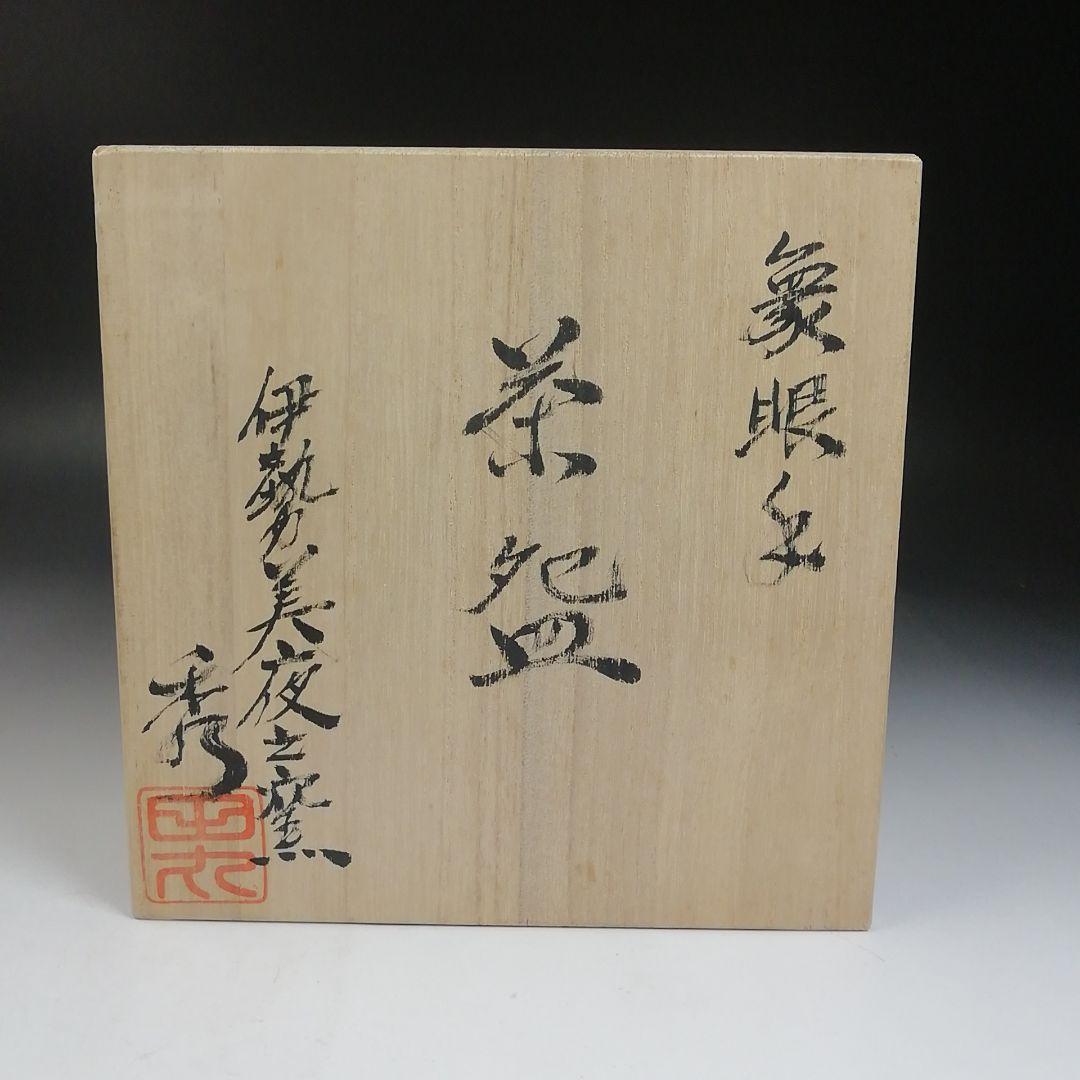 象眼手
茶盌
伊勢美夜之窯
秀